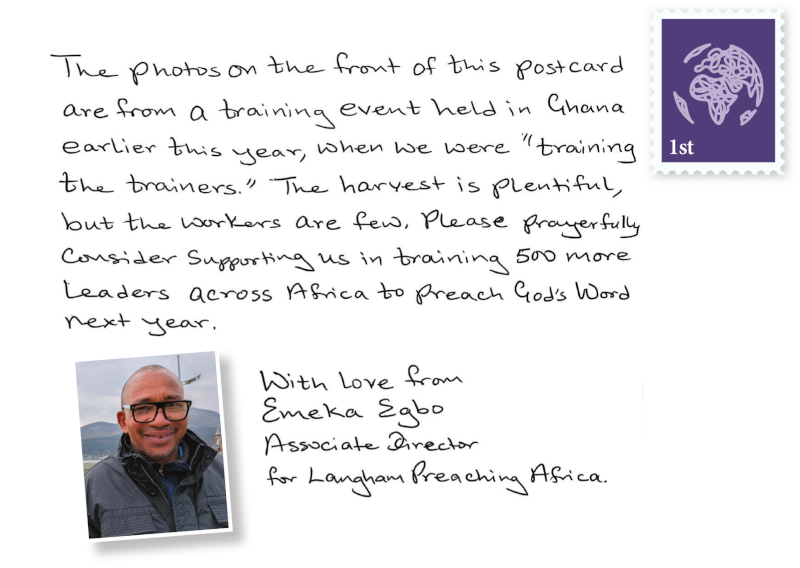 The photos on the front of this postcard
are from a training event held in Ghana
earlier this year, when we were "training
the trainers." The harvest is plentiful,
but the workers are few. Please prayerfully
Consider Supporting us in training 500 more
Leaders across Africa to preach God's Word
next year.
1st
With love from
Emeka Egbo
Associate Director
for Langham Preaching Africa.